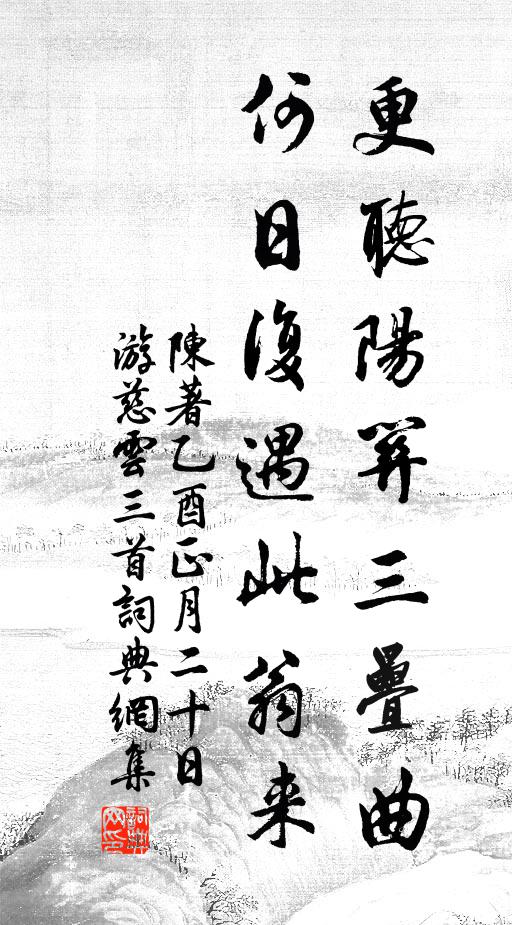 更聽陽關三疊曲
何日復遇此翁來
陳著乙酉正月二十日
游慈雲三首詞典網集